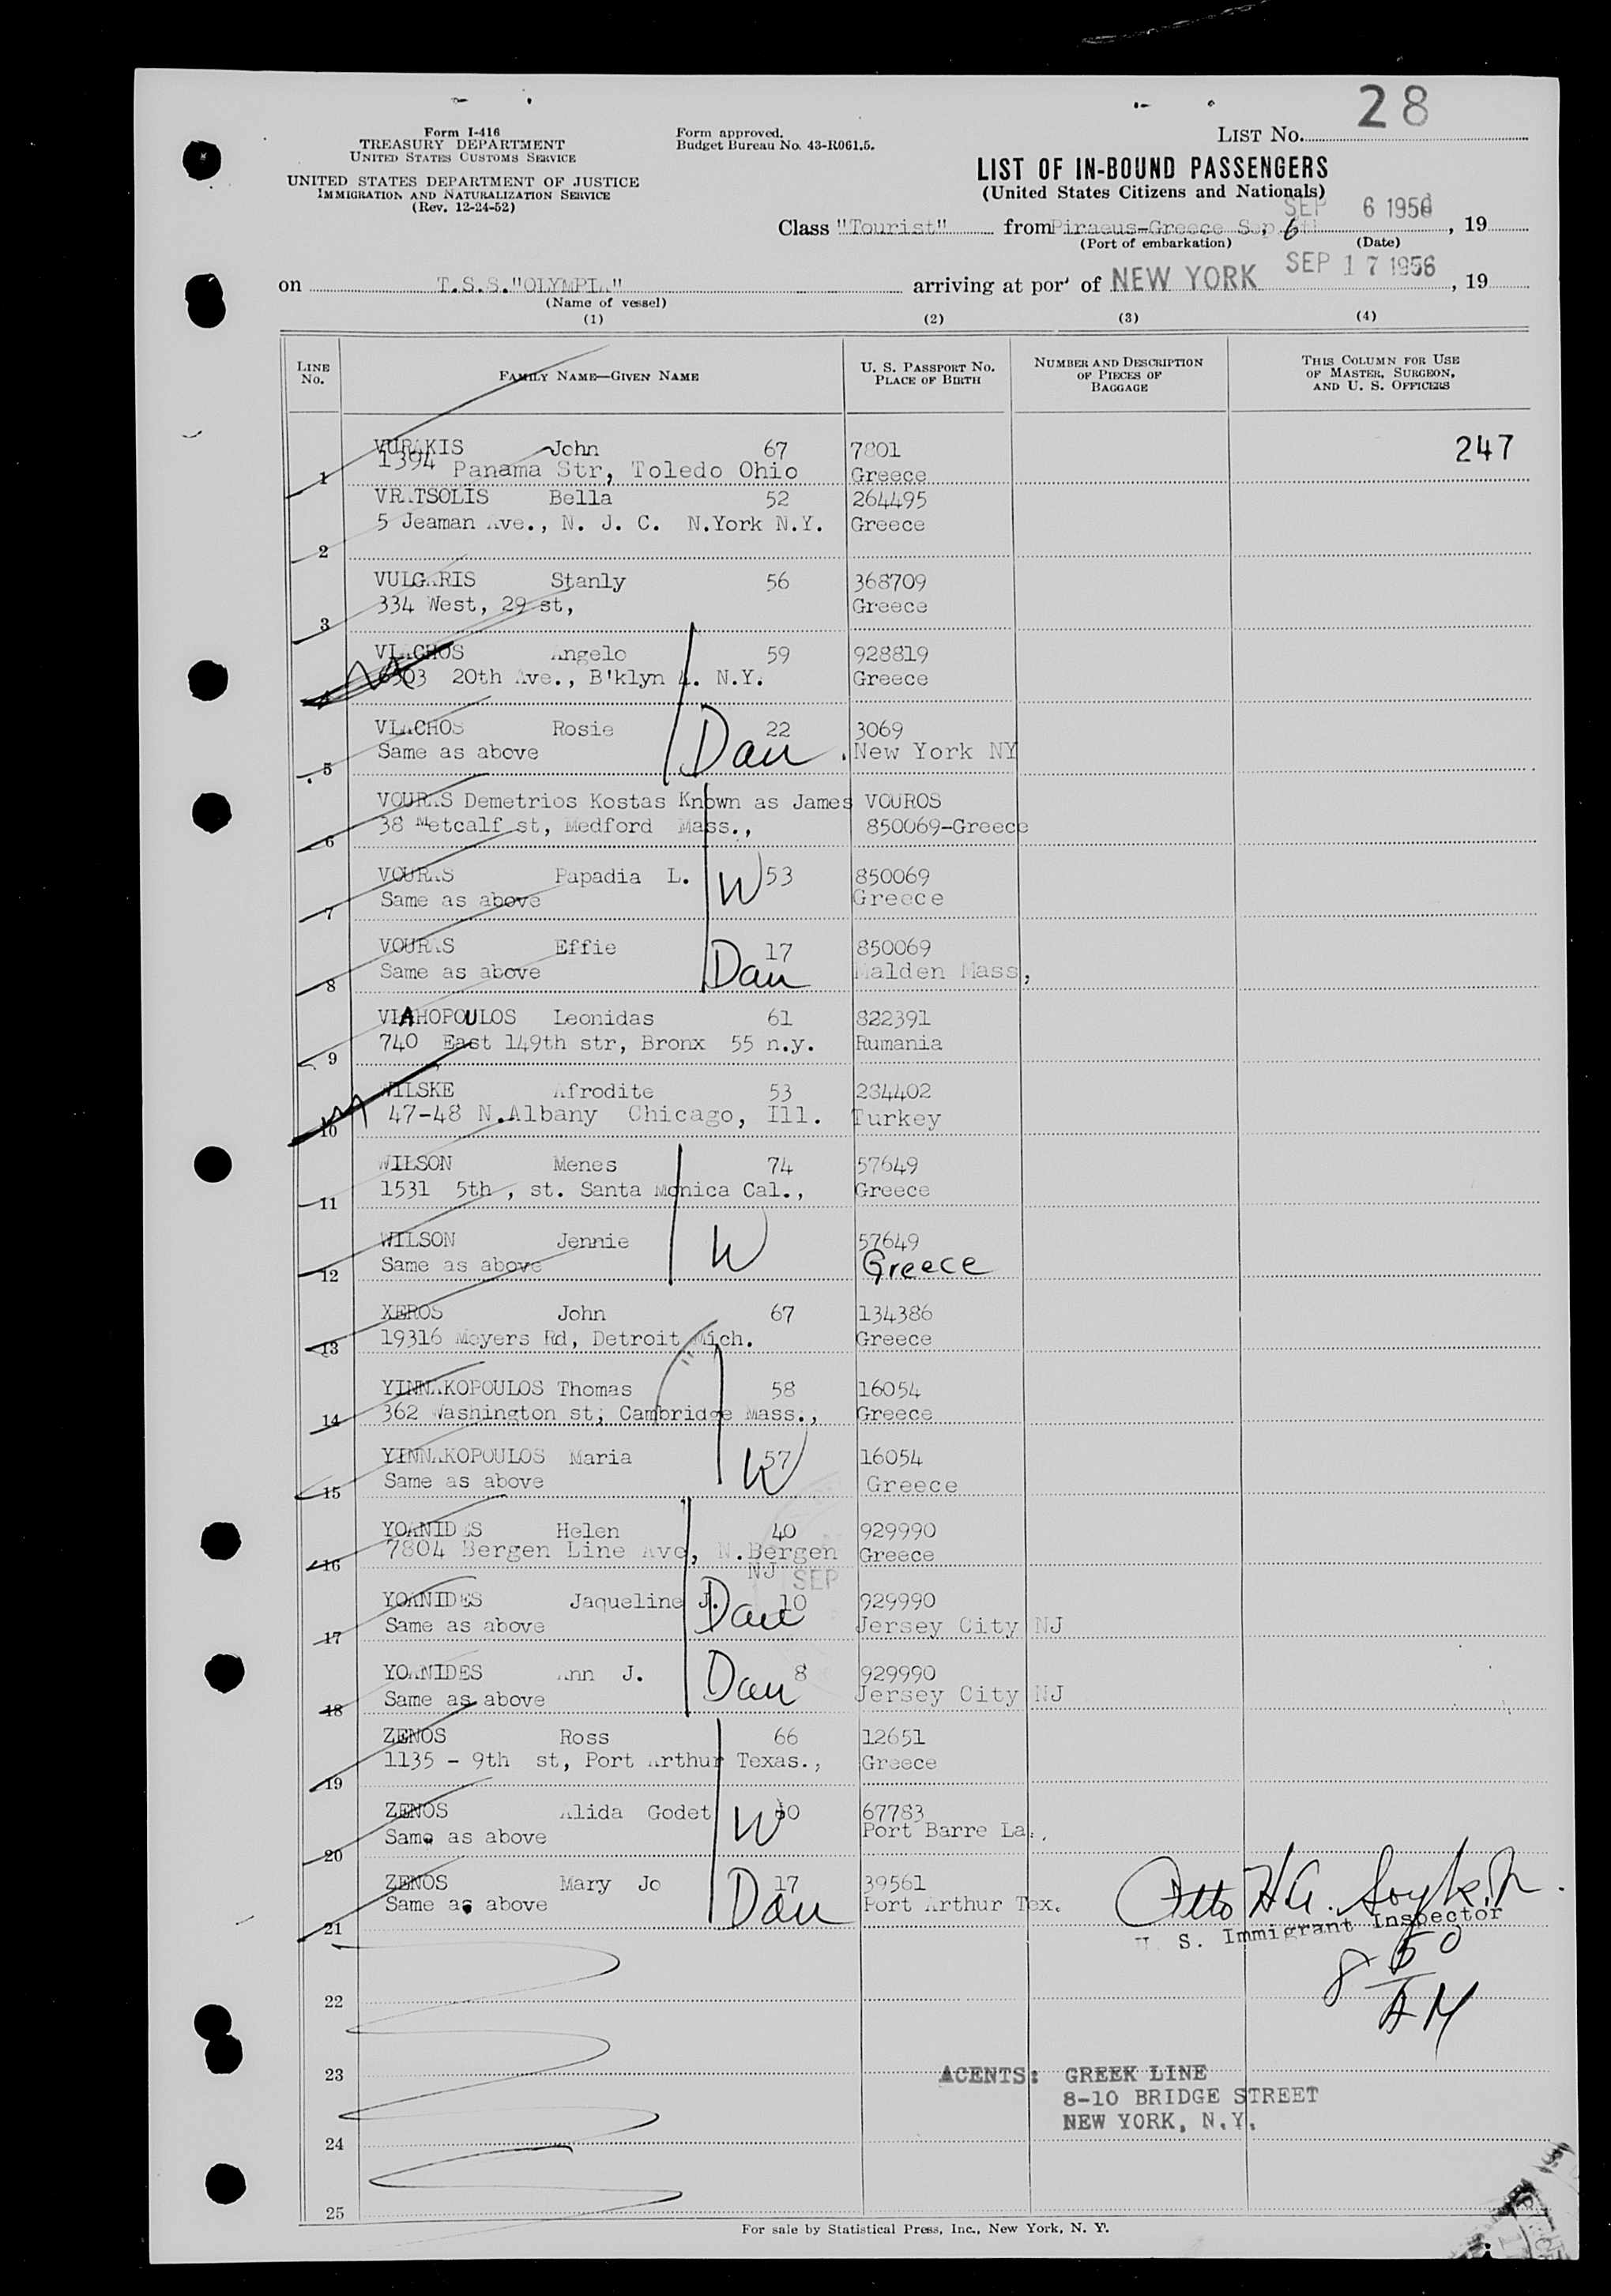 28
Form I-416
TREASURY DEPARTMENT
UNITED STATES CUSTOMS SERVICE
UNITED STATES DEPARTMENT OF JUSTICE
IMMIGRATION AND NATURALIZATION SERVICE
(Rev. 12-24-52)
Form approved.
Budget Bureau No. 43-R061.5.
LIST No.
LIST OF IN-BOUND PASSENGERS
(United States Citizens and Nationals)
SEP 6 1956
Class "Tourist" from Piraeus-Greece Sep. 6, 19
(Port of embarkation) (Date)
on T.S.S."OLYMPIA" arriving at port of NEW YORK SEP 17 1956, 19
(Name of vessel)
(1) (2) (3) (4)
LINE No. FAMILY NAME—GIVEN NAME U. S. PASSPORT NO. PLACE OF BIRTH NUMBER AND DESCRIPTION OF PIECES OF BAGGAGE THIS COLUMN FOR USE OF MASTER, SURGEON, AND U. S. OFFICERS
VURAKIS John 67 7801 247
1 1394 Panama Str, Toledo Ohio Greece
VRATSOLIS Bella 52 264495
5 Jeaman Ave., N. J. C. N.York N.Y. Greece
2
VULGARIS Stanly 56 368709
334 West, 29 st, Greece
3
VLACHOS Angelo 59 928819
6303 20th Ave., B'klyn 4. N.Y. Greece
4
VLACHOS Rosie 22 3069
Same as above Dau . New York NY
5
VOURAS Demetrios Kostas Known as James VOUROS
38 Metcalf st, Medford Mass., 850069-Greece
6
VOURAS Papadia L. W 53 850069
Same as above Greece
7
VOURAS Effie 17 850069
Same as above Dau Malden Mass,
8
VLAHOPOULOS Leonidas 61 822391
740 East 149th str, Bronx 55 n.y. Rumania
9
WILSKE Afrodite 53 284402
47-48 N.Albany Chicago, Ill. Turkey
10
WILSON Menes 74 57649
1531 5th , st. Santa Monica Cal., Greece
11
WILSON Jennie W 57649
Same as above Greece
12
XEROS John 67 134386
19316 Meyers Rd, Detroit Mich. Greece
13
YINNAKOPOULOS Thomas 58 16054
14 362 Washington st, Cambridge Mass., Greece
YINNAKOPOULOS Maria W 57 16054
Same as above Greece
15
YOANIDES Helen 40 929990
16 7804 Bergen Line Ave, N.Bergen Greece
NJ SEP
YOANIDES Jaqueline J. Dau 10 929990
Same as above Jersey City NJ
17
YOANIDES Ann J. Dau 8 929990
Same as above Jersey City NJ
18
ZENOS Ross 66 12651
1135 - 9th st, Port Arthur Texas., Greece
19
ZENOS Alida Godet W 67783
Same as above Port Barre La.,
20
ZENOS Mary Jo 17 39561
Same as above Dau Port Arthur Tex.
21
U. S. Immigrant Inspector
8 50
AM
22
23
AGENTS: GREEK LINE
8-10 BRIDGE STREET
NEW YORK, N.Y.
24
25
For sale by Statistical Press, Inc., New York, N. Y.